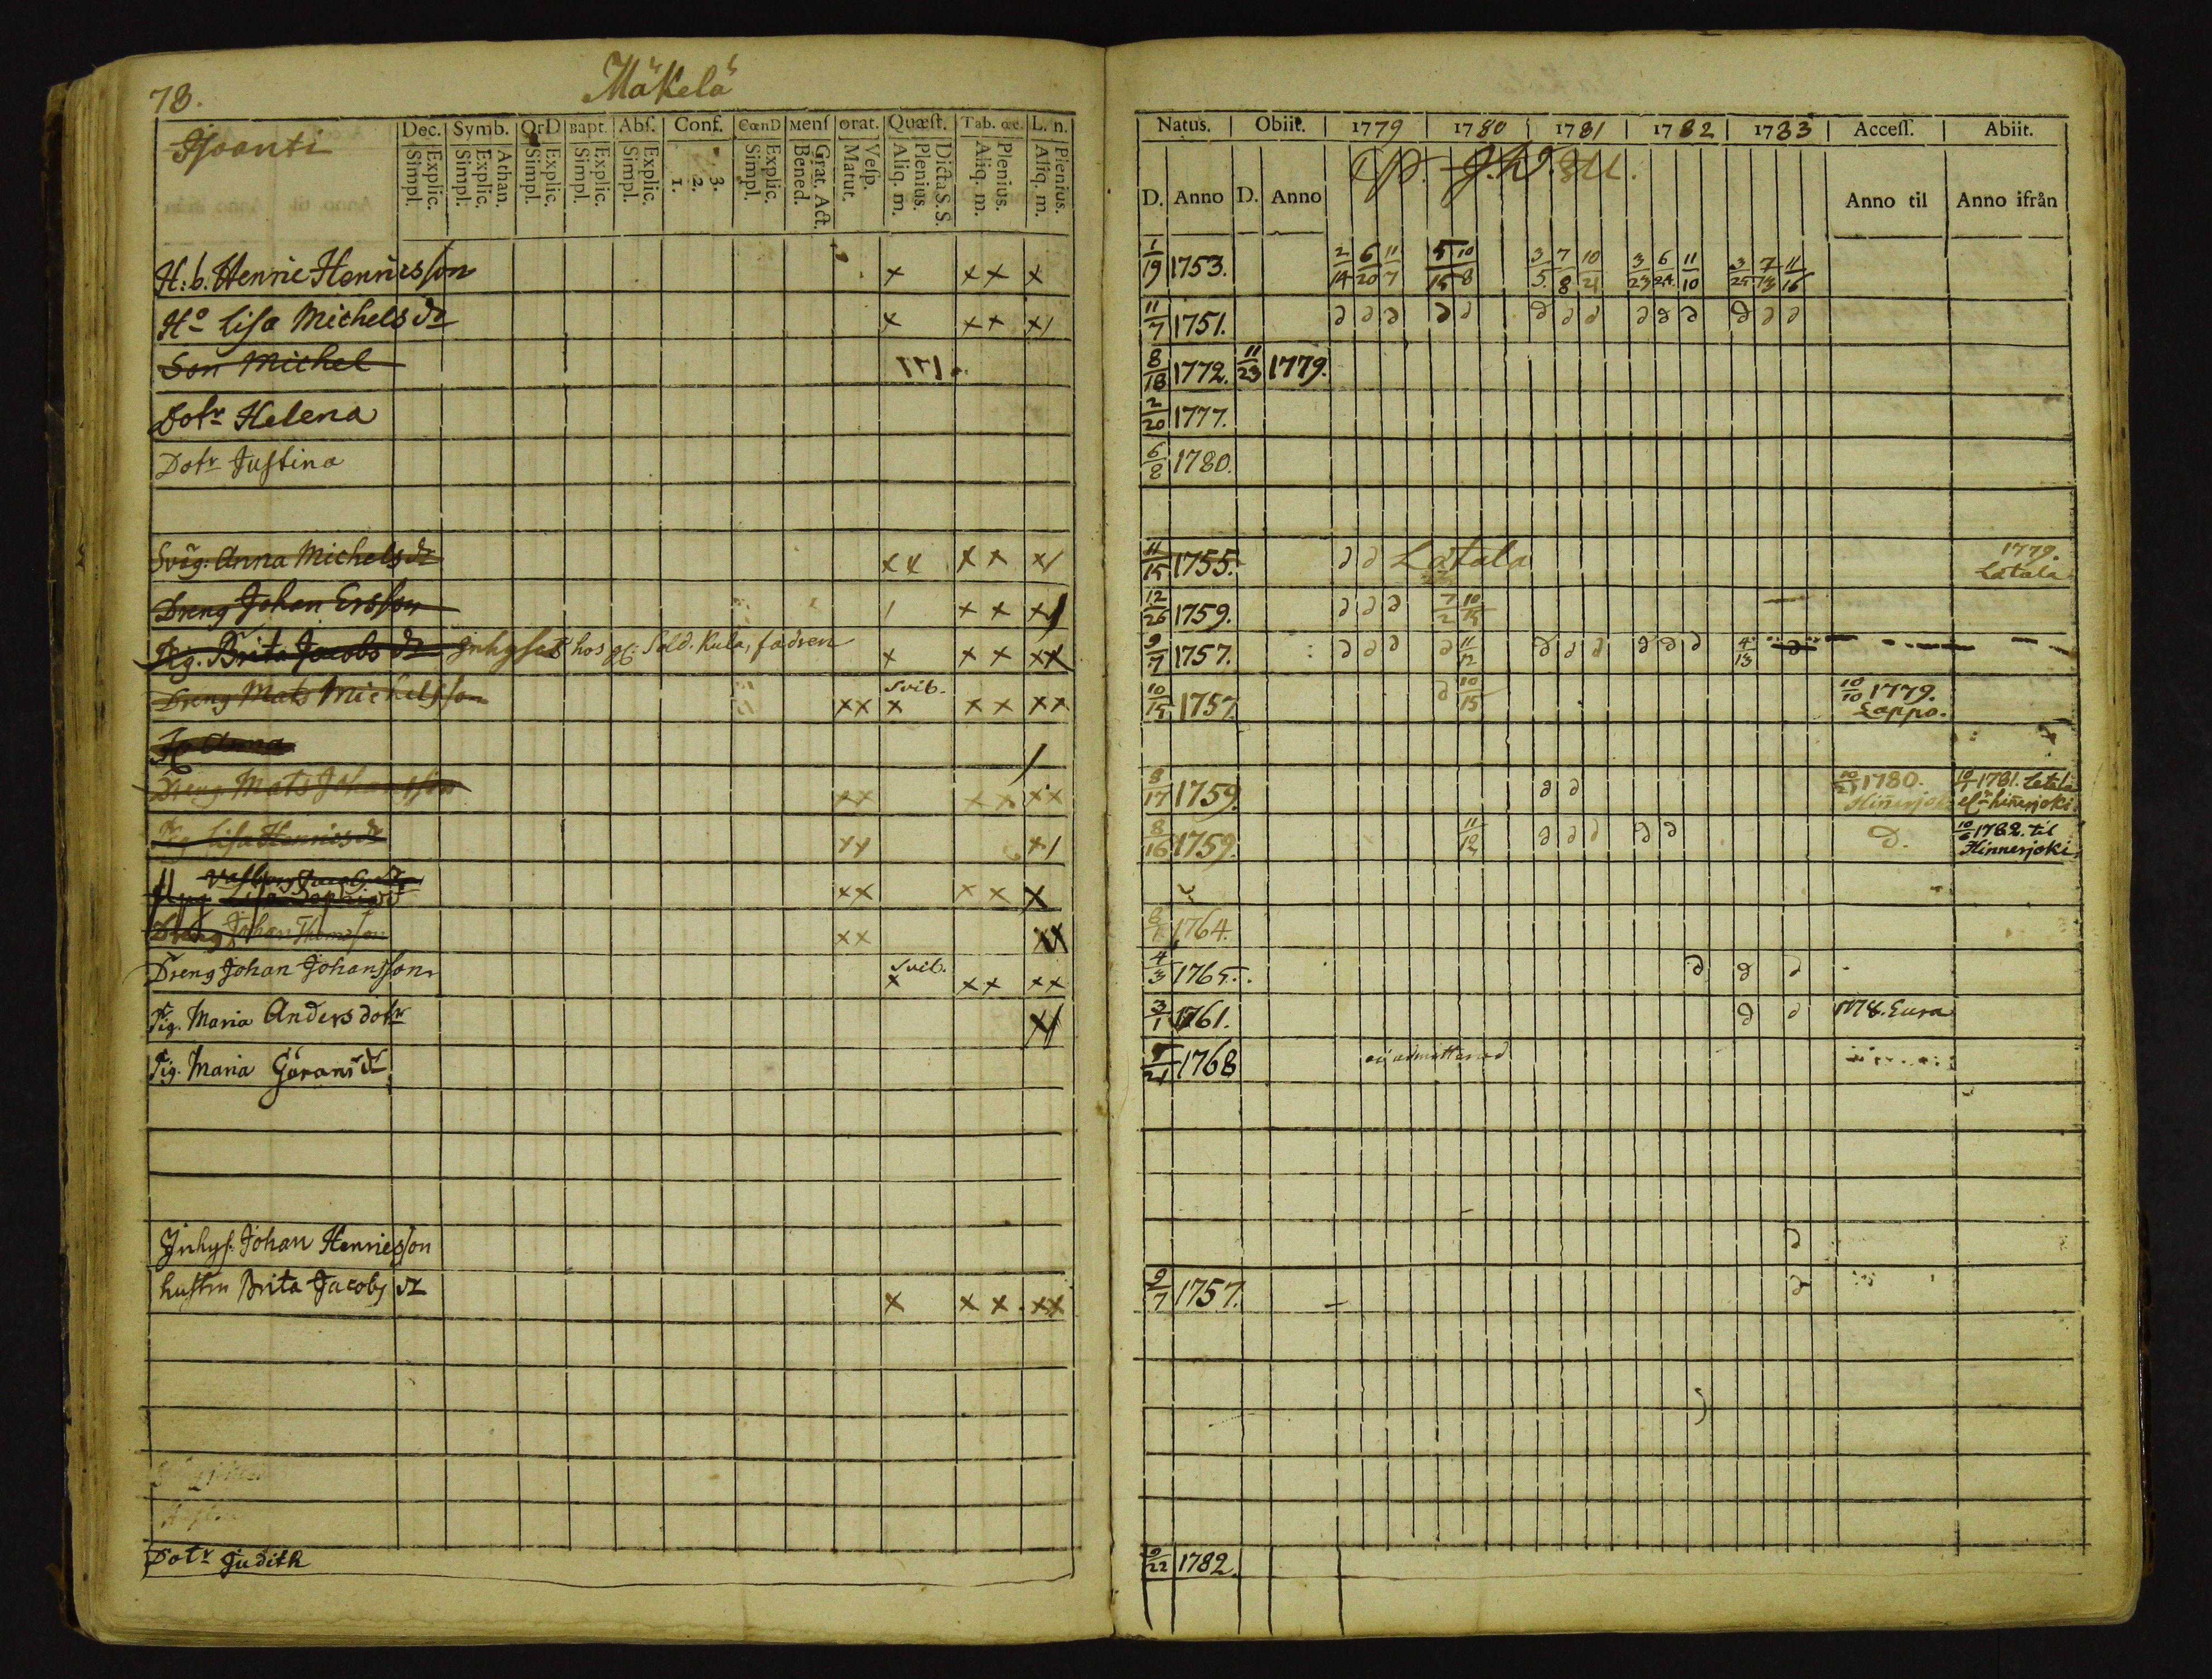 78.
Mäkelä
Isoanti
Dec. Symb. OrD Bapt. Abs. Conf. CœnD Mens orat. Quæst. Tab. œc. L. n.
Explic. Simpl. Athan. Explic. Simpl. Explic. Simpl. Explic. Simpl. Explic. Simpl. 3. 2. 1. Explic. Simpl. Grat. Act. Bened. Vesp. Matut. Dicta S.S. Plenius. Aliq. m. Plenius. Aliq. m. Plenius. Aliq. m.
Natus. Obiit. 1779 1780 1781 1782 1783 Access. Abiit.
D. Anno D. Anno Anno til Anno ifrån
H:b. Henric Henricsson x x x x 1/19 1753. 2/14 6/20 11/7 5/15 10/8 3/5 7/8 10/21 3/23 6/24 11/10 3/25 7/13 11/16
Ho Lisa Michels dr x x x x/ 11/7 1751.
Son Michel 8/18 1772. 11/23 1779.
Dotr Helena 2/20 1777.
Dotr Justina 6/8 1780.
Sväg. Anna Michels dr x x x x x/ 11/15 1755. Låtala 1779. Låtala
Dreng Johan Ersson / x x x/ 12/26 1759. 7/2 10/15
Pig. Brita Jacobs dr Inhyses hos Sold. Kula, fadren x x x x x 9/7 1757. 11/12 4/13
Dreng Mats Michelsson x x svib. x x x x x 10/15 1757. 10/15 10/10 1779. Lappo.
Ho Anna
Dreng Mats Johansson x x x x x x 8/17 1759. 1780. Hinerjoki 1781. Letala
Pig. Lisa Henrics dr x x x/ 8/16 1759. 11/12 10/6 1782. til Hinnerjoki
Valborg Jacobs dr
Lisa Sophia x x x x x
Dreng Johan Thomsson x x x x 1764.
Dreng Johan Johansson svib. x x x x x 4/3 1765.
Pig. Maria Anders dotr x/ 3/1 1761. 1778. Eura
Pig. Maria Görans dr 1768 ei admitterad
Inhys. Johan Henricsson
hustru Brita Jacobs dr x x x x x 9/7 1757.
Dotr Judith 9/22 1782.